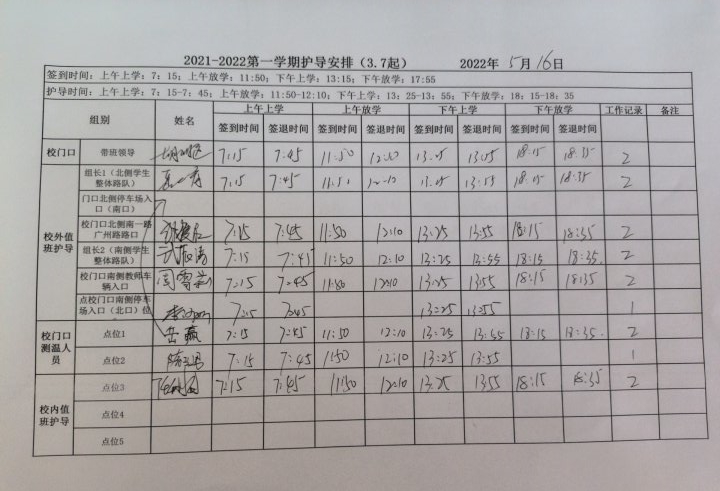 2021-2022第一学期护导安排（3.7起） 2022年 5月 16日
签到时间：上午上学：7：15；上午放学：11:50；下午上学：13:15；下午放学：17:55
护导时间：上午上学：7：15-7：45；上午放学：11:50-12:10；下午上学：13：25-13：55；下午放学：18：15-18：35
组别 姓名 上午上学 上午放学 下午上学 下午放学 工作记录 备注
签到时间 签退时间 签到时间 签退时间 签到时间 签退时间 签到时间 签退时间
校门口 带班领导 7:15 7:45 11:50 12:10 13:25 13:55 18:15 18:35 2
校外值班护导
组长1（北侧学生整体路队） 7:15 7:45 11:50 12:10 13:25 13:55 18:15 18:35 2
门口北侧停车场入口（南口）
校门口北侧南一路广州路路口 7:15 7:45 11:50 12:10 13:25 13:55 18:15 18:35 2
组长2（南侧学生整体路队） 7:15 7:45 11:50 12:10 13:25 13:55 18:15 18:35 2
校门口南侧教师车辆入口 周雪 7:15 7:45 11:50 12:10 13:25 13:55 18:15 18:35 2
点校门口南侧停车场入口（北口）位 7:15 7:45 13:25 13:55 1
校门口测温人员
点位1 岳赢 7:15 7:45 11:50 12:10 13:25 13:55 18:15 18:35 2
点位2 7:15 7:45 11:50 12:10 13:25 13:55 1
校内值班护导
点位3 7:15 7:45 11:50 12:10 13:25 13:55 18:15 18:35 2
点位4
点位5